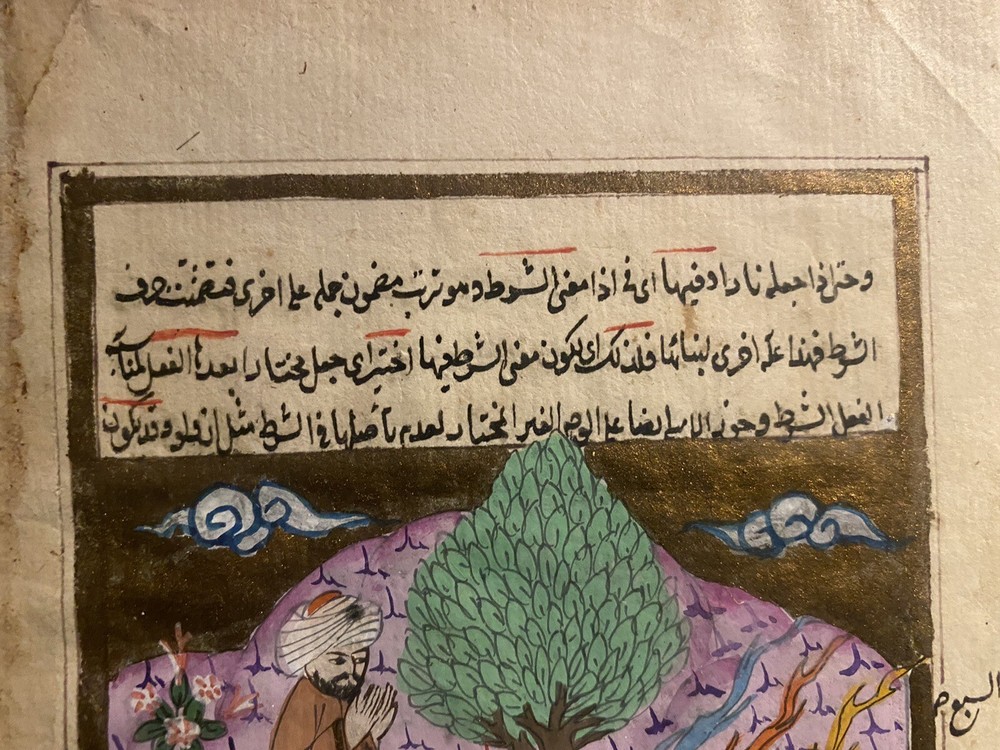 وحتى اذا جعله نارا وفيها اى فى اذا معنى الشرط وهو ترتب مضمون جمله على اخرى فتضمنت حرف
الشرط فهذا علة اخرى لبنائها فلذلك اى لكون معنى الشرط فيها اختير اى جعل مختارا بعدها الفعل لمناسبة
الفعل الشرط وجوز الاسم ايضا على الوجه الغير المختار لعدم تأصلها فى الشرط مثل ان ولو وقد تكون
السبع